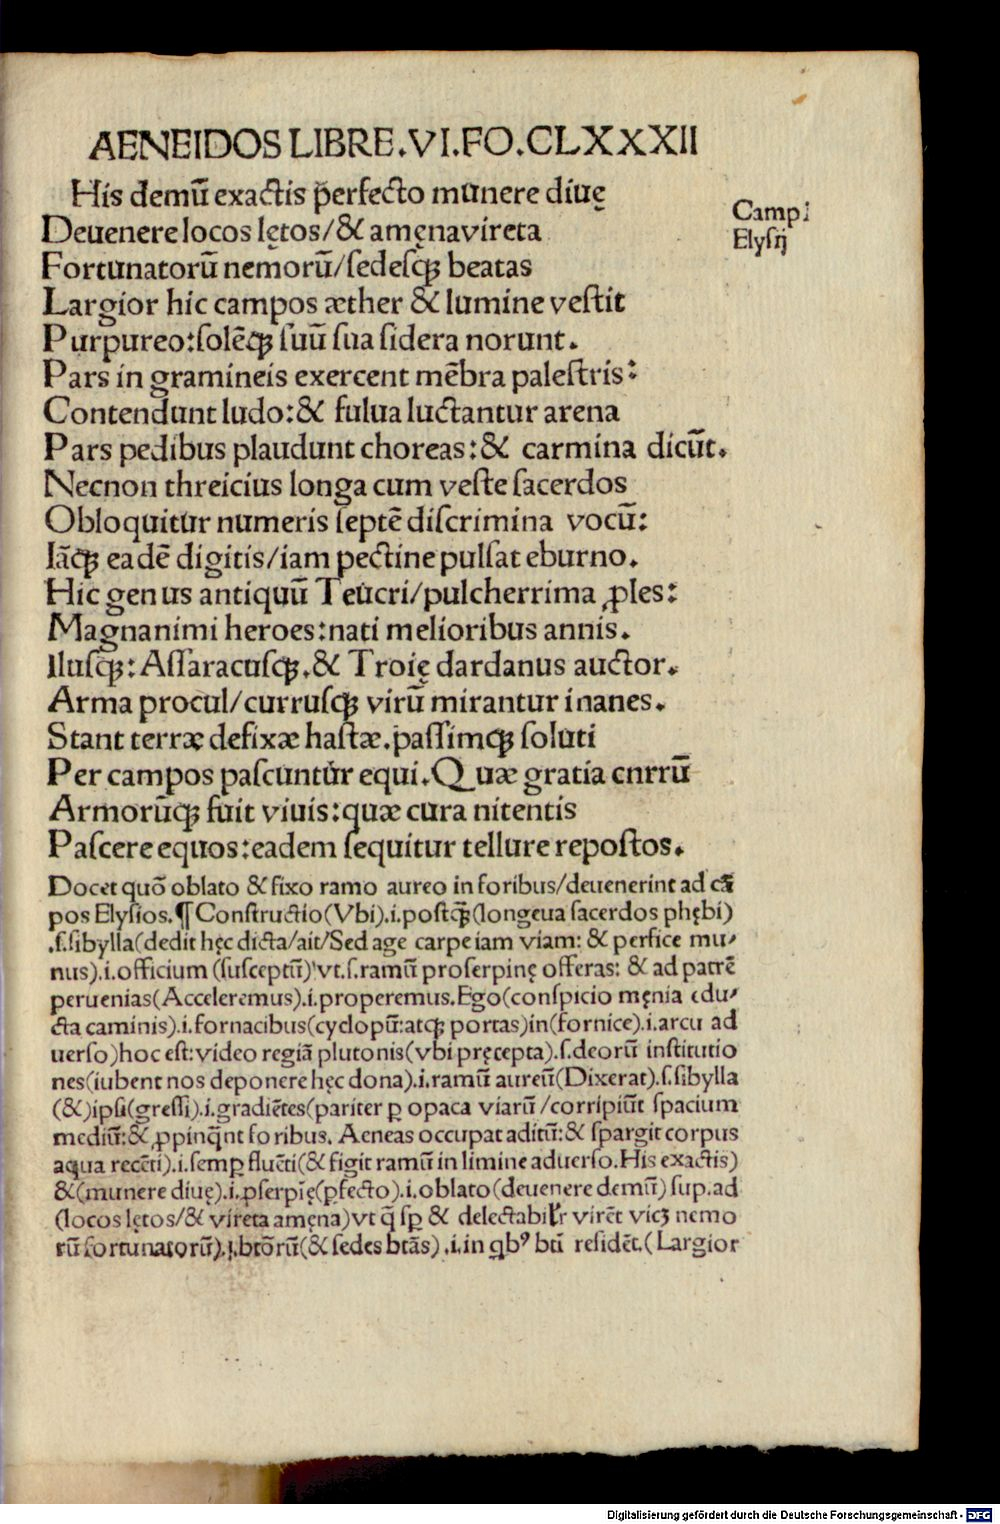 AENEIDOS LIBRE.VI.FO.CLXXXII
His demū exactis ꝑfecto munere diuę
Campi
Elysij
Deuenere locos lętos/& amęna vireta
Fortunatorū nemorū/sedesqꝫ beatas
Largior hic campos æther & lumine vestit
Purpureo:solēqꝫ suū sua sidera norunt.
Pars in gramineis exercent mēbra palestris:
Contendunt ludo:& fulua luctantur arena
Pars pedibus plaudunt choreas:& carmina dicūt.
Necnon threicius longa cum veste sacerdos
Obloquitur numeris septē discrimina vocū:
Iāqꝫ eadē digitis/iam pectine pulsat eburno.
Hic genus antiquū Teucri/pulcherrima ꝓles:
Magnanimi heroes:nati melioribus annis.
Ilusqꝫ:Assaracusqꝫ.& Troię dardanus auctor.
Arma procul/currusqꝫ virū mirantur inanes.
Stant terræ defixæ hastæ.passimqꝫ soluti
Per campos pascuntur equi.Quæ gratia cnrrū
Armorūqꝫ fuit viuis:quæ cura nitentis
Pascere equos:eadem sequitur tellure repostos.
Docet quō oblato & fixo ramo aureo in foribus/deuenerint ad cā
pos Elysios.¶Constructio(Vbi).i.postq̄(longeua sacerdos phębi)
.s.sibylla(dedit hęc dicta/ait/Sed age carpe iam viam: & perfice mu-
nus).i.officium (susceptū) vt.s.ramū proserpinę offeras: & ad patrē
peruenias(Acceleremus).i.properemus.Ego(conspicio męnia edu-
cta caminis).i.fornacibus(cyclopū:atqꝫ portas)in(fornice).i.arcu ad
uerso)hoc est:video regiā plutonis(vbi pręcepta).s.deorū institutio
nes(iubent nos deponere hęc dona).i.ramū aureū(Dixerat).s.sibylla
(&)ipsi(gressi).i.gradiētes(pariter ꝑ opaca viarū/corripiūt spacium
mediū:& ꝓpinq̄nt foribus. Aeneas occupat aditū:& spargit corpus
aqua recēti).i.semꝑ fluēti(& figit ramū in limine aduerso.His exactis)
&(munere diuę).i.ꝓserpīę(ꝑfecto).i.oblato(deuenere demū) sup.ad
(locos lętos/& vireta amęna)vt q̄ sꝑ & delectabilr virēt vicꝫ nemo
rū fortunatorū).i.btōrū(& sedes btās).i.in qbꝰ bti residēt.(Largior
Digitalisierung gefördert durch die Deutsche Forschungsgemeinschaft - DFG